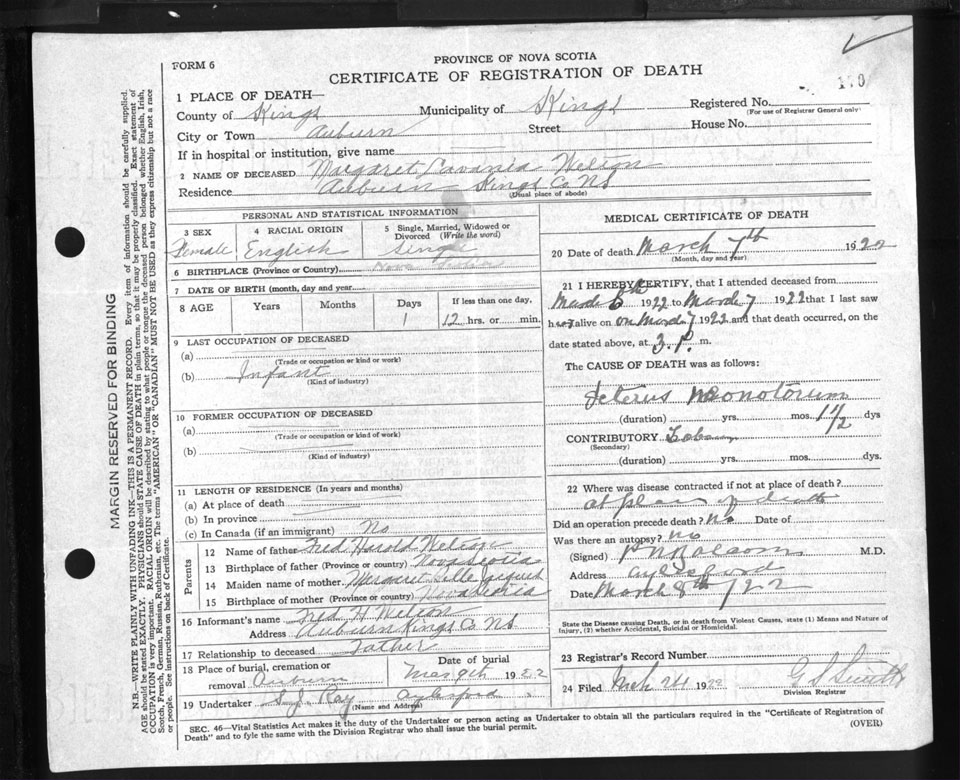 FORM 6
PROVINCE OF NOVA SCOTIA
CERTIFICATE OF REGISTRATION OF DEATH
MARGIN RESERVED FOR BINDING
N.B.—WRITE PLAINLY WITH UNFADING INK—THIS IS A PERMANENT RECORD. Every item of information should be carefully supplied.
AGE should be stated EXACTLY. PHYSICIANS should STATE CAUSE OF DEATH in plain terms, so that it may be properly classified. Exact statement of
OCCUPATION is very important. RACIAL ORIGIN will be described by stating to what people or tongue the deceased person belonged whether English, Irish,
Scotch, French, German, Russian, Ruthenian, etc. The terms "AMERICAN" OR "CANADIAN" MUST NOT BE USED as they express citizenship but not a race
or people. See instructions on back of Certificate.
1 PLACE OF DEATH—
County of Kings Municipality of Kings Registered No.
(For use of Registrar General only)
City or Town Auburn Street House No.
If in hospital or institution, give name
2 NAME OF DECEASED Margaret Lavania Welton
Residence Auburn Kings Co NS
(Usual place of abode)
PERSONAL AND STATISTICAL INFORMATION
3 SEX Female
4 RACIAL ORIGIN English
5 Single, Married, Widowed or Divorced (Write the word) Single
6 BIRTHPLACE (Province or Country) Nova Scotia
7 DATE OF BIRTH (month, day and year)
8 AGE Years Months Days 1 If less than one day, 12 hrs. or min.
9 LAST OCCUPATION OF DECEASED
(a)
(Trade or occupation or kind or work)
(b) Infant
(Kind of industry)
10 FORMER OCCUPATION OF DECEASED
(a)
(Trade or occupation or kind of work)
(b)
(Kind of industry)
11 LENGTH OF RESIDENCE (In years and months)
(a) At place of death
(b) In province
(c) In Canada (if an immigrant) No
Parents
12 Name of father Fred Harold Welton
13 Birthplace of father (Province or country) Nova Scotia
14 Maiden name of mother Margaret
15 Birthplace of mother (Province or country) Nova Scotia
16 Informant's name Fred H Welton
Address Auburn Kings Co NS
17 Relationship to deceased Father
18 Place of burial, cremation or removal Auburn Date of burial Mar 9th 1922
19 Undertaker S.J. Ray Aylesford
(Name and Address)
MEDICAL CERTIFICATE OF DEATH
20 Date of death March 7th 1922
(Month, day and year)
21 I HEREBY CERTIFY, that I attended deceased from
March 6th 1922 to March 7 1922 that I last saw
her alive on March 7 1922 and that death occurred, on the
date stated above, at 3 P. m.
The CAUSE OF DEATH was as follows:
Icterus Neonotorum
(duration) yrs. mos. 1 1/2 dys
CONTRIBUTORY
(Secondary)
(duration) yrs. mos. dys.
22 Where was disease contracted if not at place of death?
at place of death
Did an operation precede death? No Date of
Was there an autopsy? No
(Signed) M.D.
Address Aylesford
Date March 8th 1922
State the Disease causing Death, or in death from Violent Causes, state (1) Means and Nature of
Injury, (2) whether Accidental, Suicidal or Homicidal.
23 Registrar's Record Number
24 Filed Mch 24 1922 G S Smith
Division Registrar
SEC. 46—Vital Statistics Act makes it the duty of the Undertaker or person acting as Undertaker to obtain all the particulars required in the "Certificate of Registration of
Death" and to fyle the same with the Division Registrar who shall issue the burial permit.
(OVER)